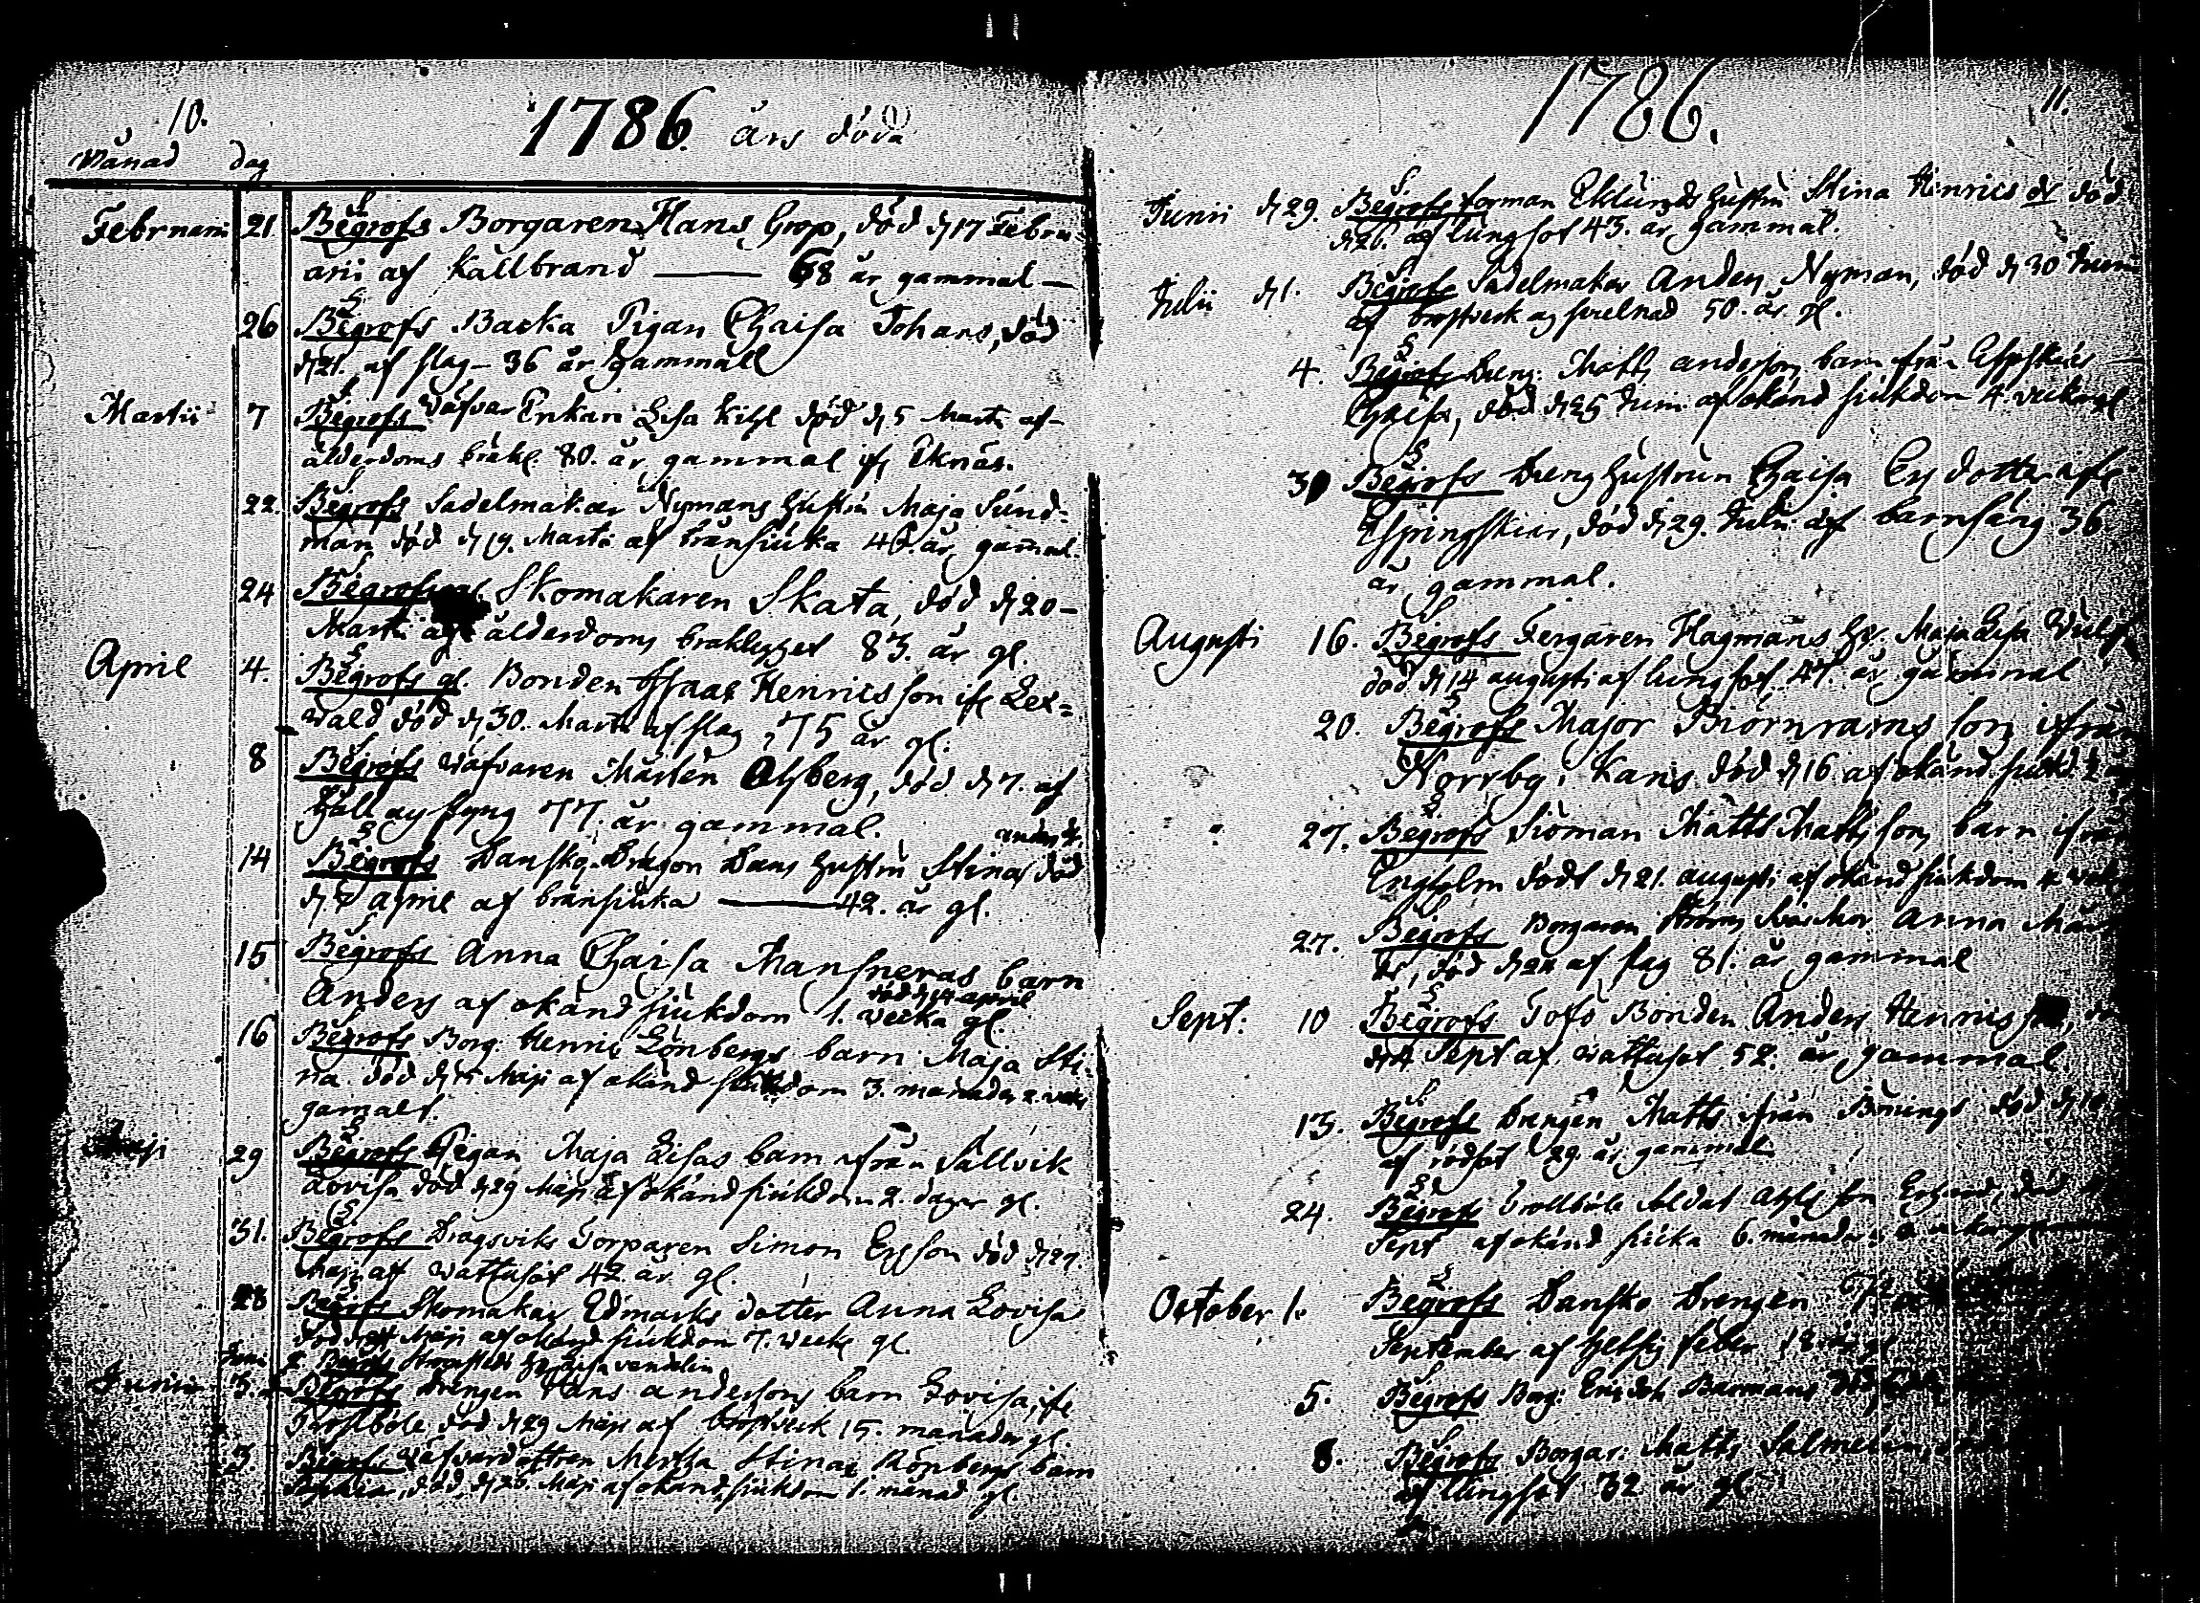 10.
1786 års döda
Månad dag
Februarii 21 Begrofs Borgaren Hans Grop, död d 17 Febru-
arii af kallbrand — 68 år gammal —
26 Begrofs Backa Pigan Chaisa Johans, död
d 21. af slag — 36 år gammall
Martii 7 Begrofs Enkan Lisa död d 5 Martii af
ålderdoms bräkl. 80. år gammal if Eknäs.
22. Begrofs Sadelmakar Nymans Hustru Maja Sund-
man död d 19. Martii af bränsiuka 46. år gammal.
24 Begrofs Skomakaren Skata, död d 20 —
Martii af ålderdoms bräklighet 83. år gl.
April 4. Begrofs gl. Bonden Isaac Henricsson if Lex-
wald död d 30. Martii af slag, 75 år gl.
8 Begrofs wäfvaren Mårten Ahlberg, död d 7. af
håll og styng 77. år gammal.
14 Begrofs Dansky Dragon Dans Hustru Stina anders dr. död
d. 7 april af bränsiuka — 42. år gl.
15 Begrofs Anna Chaisa Mansneras barn
Anders af okänd siukdom 1. wecka gl. död d 14 april
16 Begrofs Borg. Henric Lönbergs barn Maja Sti-
na. död d Maji af okänd siukdom 3. månader 2. weck
gamalt.
Maji 29 Begrofs Pigan Maja Lisas barn från Sällvik
Lovisa död d 29 Maji af okänd siukdom 2. dagar gl.
31. Begrofs Dragsviks Torparen Simon Ersson död d 27.
Maji af wattusot 42 år gl.
28 Begrofs Skomakar Edmarks dotter Anna Lovisa
död d Maji af okänd siukdom 7. weck gl.
Juni 2 Begrofs
Junii 3. Begrofs Drengen Hans anderssons barn Lovisa, if
Trollböle, död d 29 Maji af bröstwerk 15. månader gl.
3. Begrofs Wäfvardottren Stinas Rönbergs barn
död d 26. Maji af okänd siukdom 1. månad gl.
1786.
11.
Junii d 29. Begrofs forman Eklunds Hustru Stina Henrics dr död
d 26. af lungsot 43. år gammal.
Julii d 1. Begrofs Sadelmakar Anders Nyman, död d 30 Junii
af bröstwerk og 50. år gl.
4. Begrofs Dreng. Matts anderssons barn från
död d 25 Junii af okänd siukdom 4 weckor gl
31 Begrofs Dreng Hustrun Chaisa Ers dotter ifr
Espingskiär, död d 29. Julii af barnsäng 36
år gammal.
Augusti 16. Begrofs Fergaren Hagmans Hu. Maja Lisa Wulf
död d 14 augusti af lungsot, 47. år gammal
20. Begrofs Major Biörnrams son ifrån
Norrby i Karis död d 16 af okänd siukd.
27. Begrofs Sioman Matts Mattssons barn ifrån
Engholm dödt d 21. augusti af okänd siukdom 4
27. Begrofs Borgaren Anna
dr, död d 24 af slag 81. år gammal
Sept. 10 Begrofs Tofö Bonden Anders Henricsson,
d 4 Sept af wattusot 52. år gammal
13. Begrofs Drengen Matts ifrån död d
af rödsot 29. år gammal
24. Begrofs Trollböle Soldat son död
Sept af okänd siuka 6. månader
October 1. Begrofs Dansko Drengen
September af hetsig feber 18 år gl
5. Begrofs Borg.
8. Begrofs Borgar: Matts
af lungsot 32 år gl